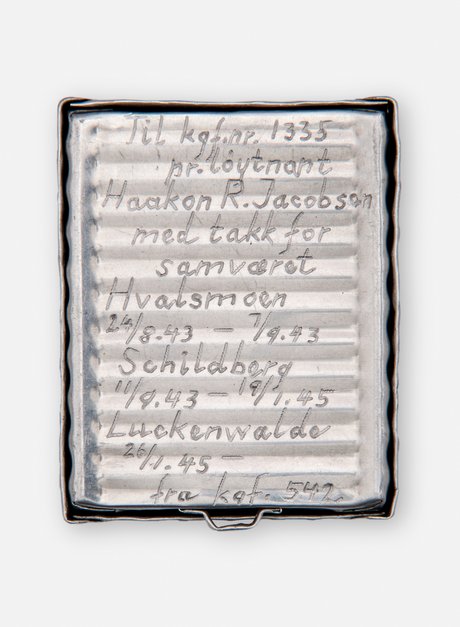 Til kgf.nr. 1335
pr. løytnant
Haakon R. Jacobsen
med takk for
samværet
Hvalsmoen
24/8.43 — 7/9.43
Schildberg
11/9.43 — 19/1.45
Luckenwalde
26/1.45 —
fra kgf. 542